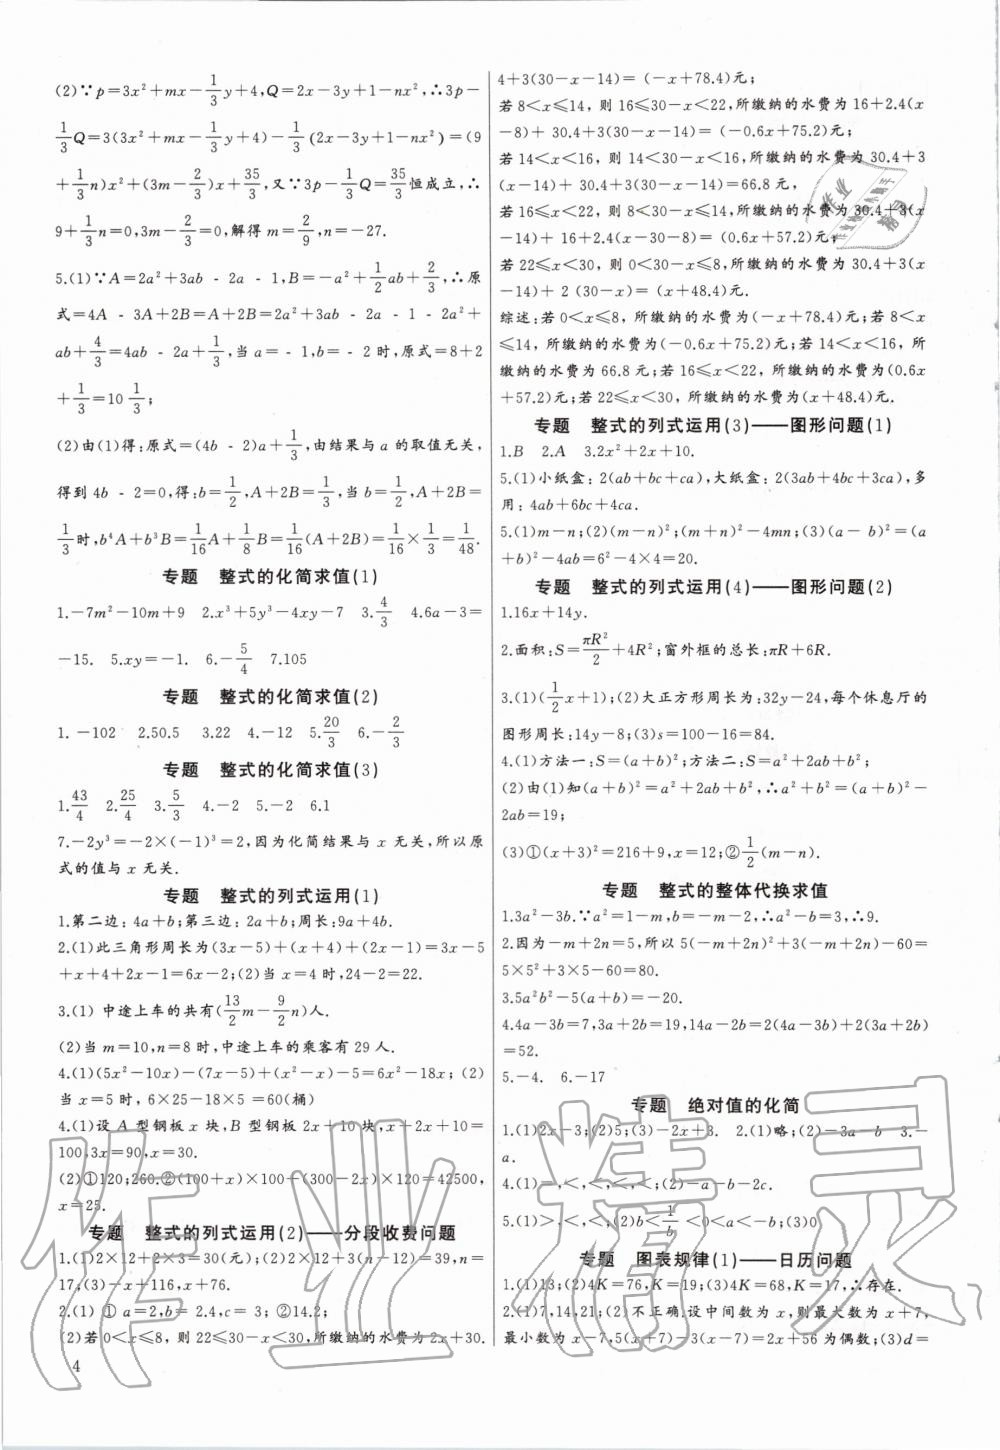 (2)∵p=3x²+mx-1/3y+4,Q=2x-3y+1-nx²,∴3p-
1/3Q=3(3x²+mx-1/3y+4)-1/3(2x-3y+1-nx²)=(9
+1/3n)x²+(3m-2/3)x+35/3,又∵3p-1/3Q=35/3恒成立,∴
9+1/3n=0,3m-2/3=0,解得m=2/9,n=-27.
5.(1)∵A=2a²+3ab-2a-1,B=-a²+1/2ab+2/3,∴原
式=4A-3A+2B=A+2B=2a²+3ab-2a-1-2a²+
ab+4/3=4ab-2a+1/3,当a=-1,b=-2时,原式=8+2
+1/3=10 1/3;
(2)由(1)得:原式=(4b-2)a+1/3,由结果与a的取值无关,
得到4b-2=0,得:b=1/2,A+2B=1/3,当b=1/2,A+2B=
1/3时,b⁴A+b³B=1/16A+1/8B=1/16(A+2B)=1/16×1/3=1/48.
专题 整式的化简求值(1)
1.-7m²-10m+9 2.x³+5y³-4xy-7 3.4/3 4.6a-3=
-15. 5.xy=-1. 6.-5/4 7.105
专题 整式的化简求值(2)
1. -102 2.50.5 3.22 4.-12 5.20/3 6.-2/3
专题 整式的化简求值(3)
1.43/4 2.25/4 3.5/3 4.-2 5.-2 6.1
7.-2y³=-2×(-1)³=2,因为化简结果与x无关,所以原
式的值与x无关.
专题 整式的列式运用(1)
1.第二边:4a+b;第三边:2a+b;周长:9a+4b.
2.(1)此三角形周长为(3x-5)+(x+4)+(2x-1)=3x-5
+x+4+2x-1=6x-2;(2)当x=4时,24-2=22.
3.(1)中途上车的共有(13/2m-9/2n)人.
(2)当m=10,n=8时,中途上车的乘客有29人.
4.(1)(5x²-10x)-(7x-5)+(x²-x)-5=6x²-18x;(2)
当x=5时,6×25-18×5=60(桶)
4.(1)设A型钢板x块,B型钢板2x+10块,x+2x+10=
100,3x=90,x=30.
(2)①120;260.②(100+x)×100+(300-2x)×120=42500,
x=25.
专题 整式的列式运用(2)——分段收费问题
1.(1)2×12+2×3=30(元);(2)2×12+3(n-12)=39,n=
17,(3)-x+116,x+76.
2.(1)①a=2,b=2.4,c=3;②14.2;
(2)若0<x≤8,则22≤30-x<30,所缴纳的水费为2x+30.
4
4+3(30-x-14)=(-x+78.4)元;
若8<x≤14,则16≤30-x<22,所缴纳的水费为16+2.4(x
-8)+30.4+3(30-x-14)=(-0.6x+75.2)元;
若14<x<16,则14<30-x<16,所缴纳的水费为30.4+3
(x-14)+30.4+3(30-x-14)=66.8元,
若16≤x<22,则8<30-x≤14,所缴纳的水费为30.4+3(x
-14)+16+2.4(30-x-8)=(0.6x+57.2)元;
若22≤x<30,则0<30-x≤8,所缴纳的水费为30.4+3(x
-14)+2(30-x)=(x+48.4)元.
综述:若0<x≤8,所缴纳的水费为(-x+78.4)元;若8<x
≤14,所缴纳的水费为(-0.6x+75.2)元;若14<x<16,所
缴纳的水费为66.8元;若16≤x<22,所缴纳的水费为(0.6x
+57.2)元;若22≤x<30,所缴纳的水费为(x+48.4)元.
专题 整式的列式运用(3)——图形问题(1)
1.B 2.A 3.2x²+2x+10.
5.(1)小纸盒:2(ab+bc+ca),大纸盒:2(3ab+4bc+3ca),多
用:4ab+6bc+4ca.
5.(1)m-n;(2)(m-n)²;(m+n)²-4mn;(3)(a-b)²=(a
+b)²-4ab=6²-4×4=20.
专题 整式的列式运用(4)——图形问题(2)
1.16x+14y.
2.面积:S=πR²/2+4R²;窗外框的总长:πR+6R.
3.(1)(1/2x+1);(2)大正方形周长为:32y-24,每个休息厅的
图形周长:14y-8;(3)s=100-16=84.
4.(1)方法一:S=(a+b)²;方法二:S=a²+2ab+b²;
(2)由(1)知(a+b)²=a²+2ab+b²,∴a²+b²=(a+b)²-
2ab=19;
(3)①(x+3)²=216+9,x=12;②1/2(m-n).
专题 整式的整体代换求值
1.3a²-3b.∵a²=1-m,b=-m-2,∴a²-b=3,∴9.
2.因为-m+2n=5,所以5(-m+2n)²+3(-m+2n)-60=
5×5²+3×5-60=80.
3.5a²b²-5(a+b)=-20.
4.4a-3b=7,3a+2b=19,14a-2b=2(4a-3b)+2(3a+2b)
=52.
5.-4. 6.-17
专题 绝对值的化简
1.(1)2x-3;(2)5;(3)-2x+3. 2.(1)略;(2)-3a-b 3.-
a.
4.(1)=,<,<,<,<;(2)-a-b-2c.
5.(1)>,<,<,(2)b<1/b<0<a<-b;(3)0
专题 图表规律(1)——日历问题
1.(1)13;(2)4K=76,K=19;(3)4K=68,K=17,∴存在.
2.(1)7,14,21;(2)不正确.设中间数为x,则最大数为x+7,
最小数为x-7,5(x+7)-3(x-7)=2x+56为偶数;(3)d=
作业精灵